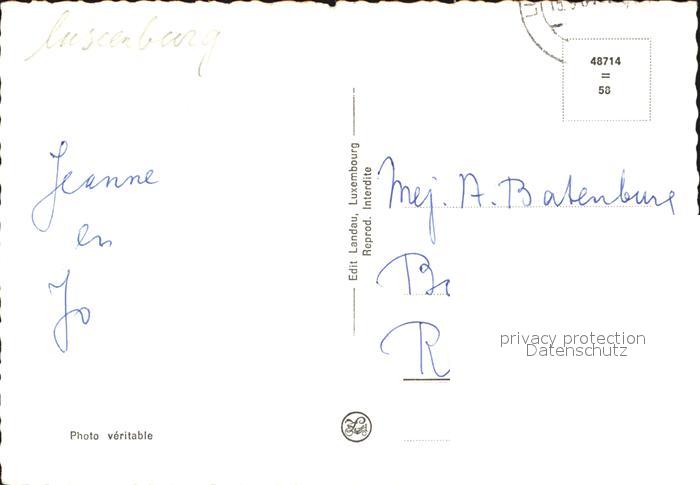 Luxenburg
48714
=
58
Jeanne
en
Jo
Edit Landau, Luxembourg
Reprod. Interdite
Mej. A. Batenburg
B
R
privacy protection
Datenschutz
Photo véritable